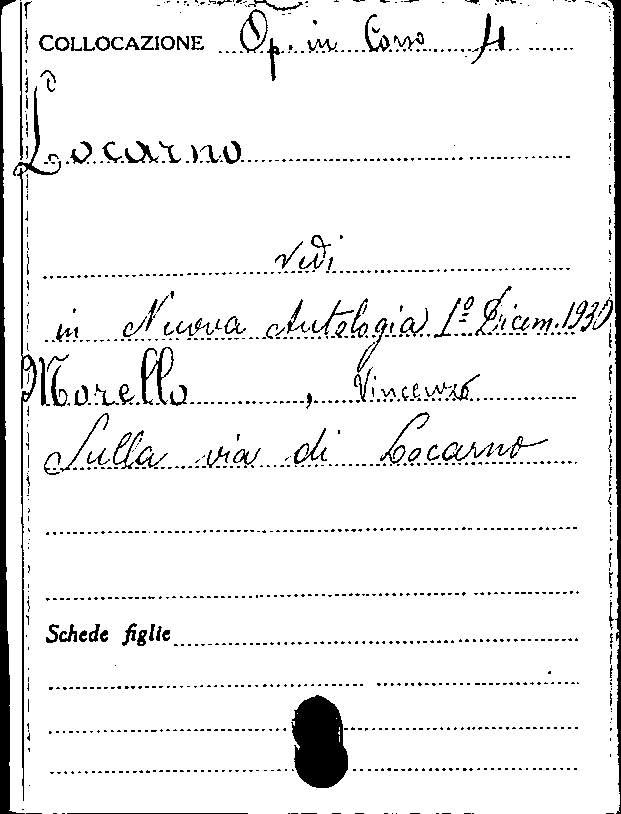 COLLOCAZIONE Op. in Corso 4
Locarno
vedi
in Nuova Antologia 1º Dicem. 1930
Morello, Vincenzo
Sulla via di Locarno
Schede figlie